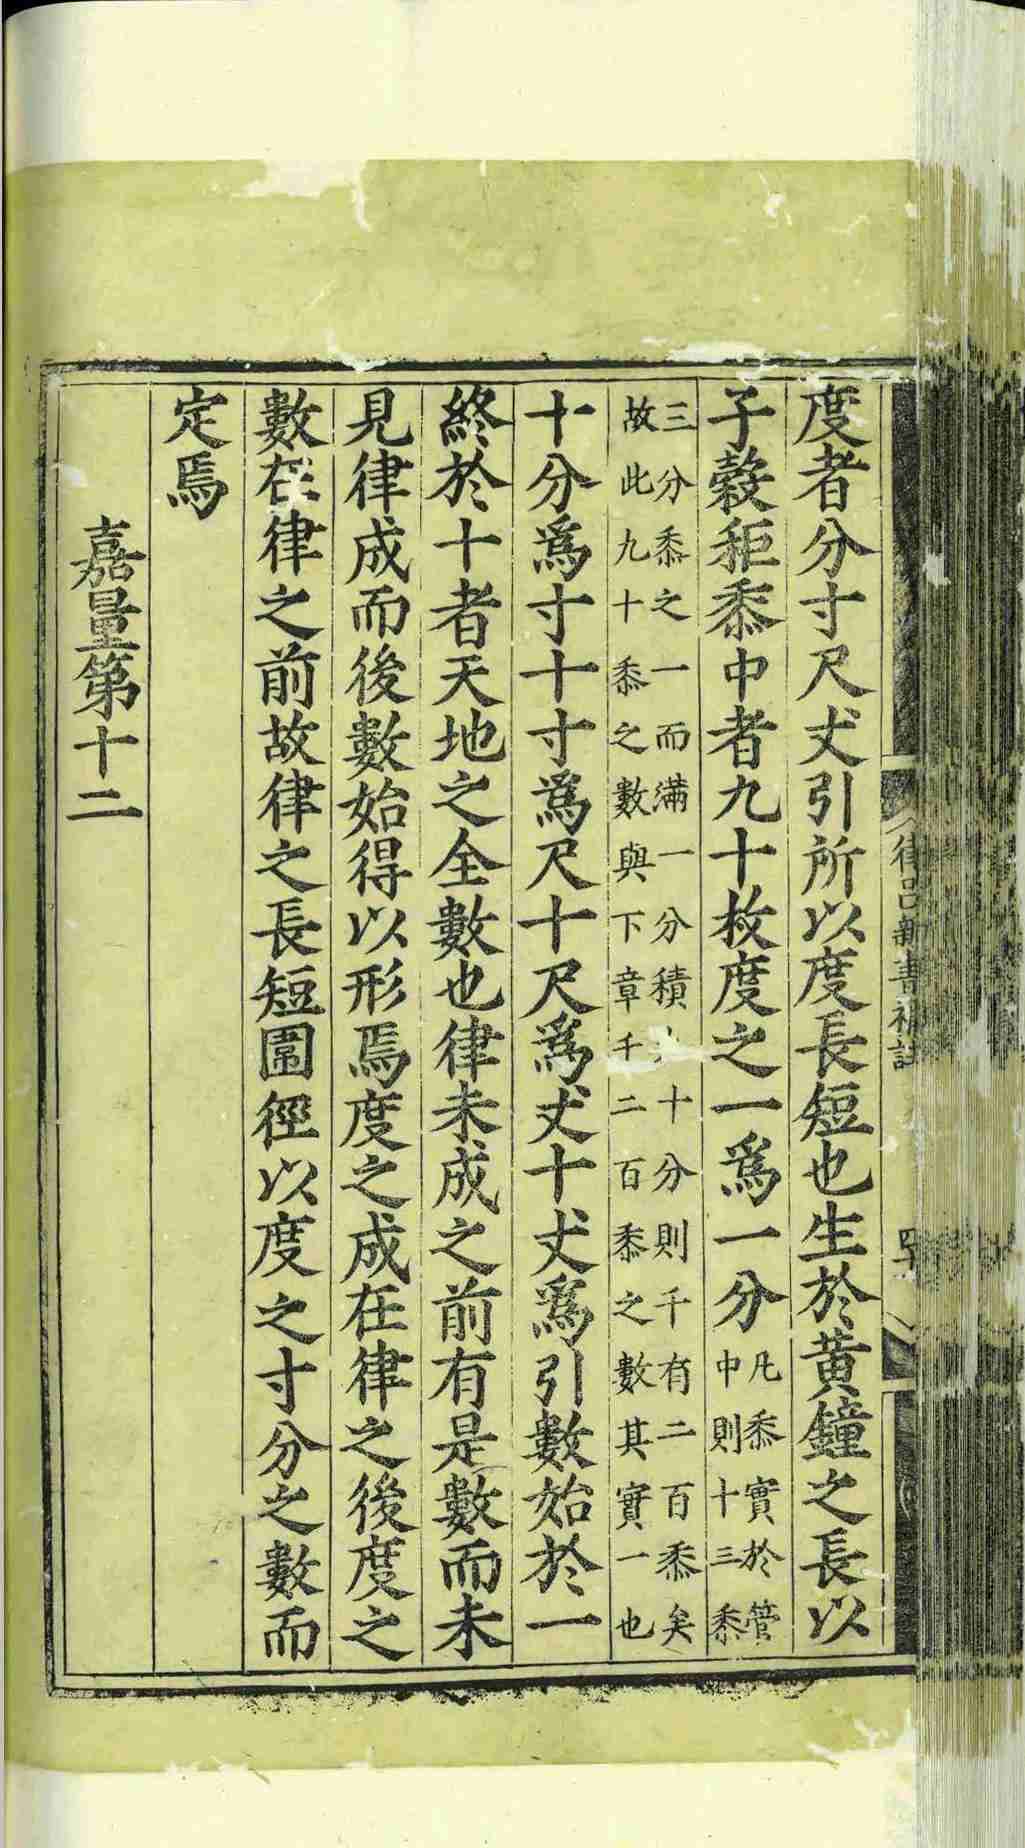 度者分寸尺𠀋引所以度長短也生於黃鐘之長以
子穀秬黍中者九十枚度之一爲一分凡黍實於管
中則十三黍
三分黍之一而滿一分積十分則千有二百黍矣
故此九十黍之數與下章千二百黍之數其實一也
十分爲寸十寸爲尺十尺爲𠀋十𠀋爲引數始於一
終於十者天地之全數也律未成之前有是數而未
見律成而後數始得以形焉度之成在律之後度之
數在律之前故律之長短圍徑以度之寸分之數而
定焉
嘉量第十二
律呂新書補註